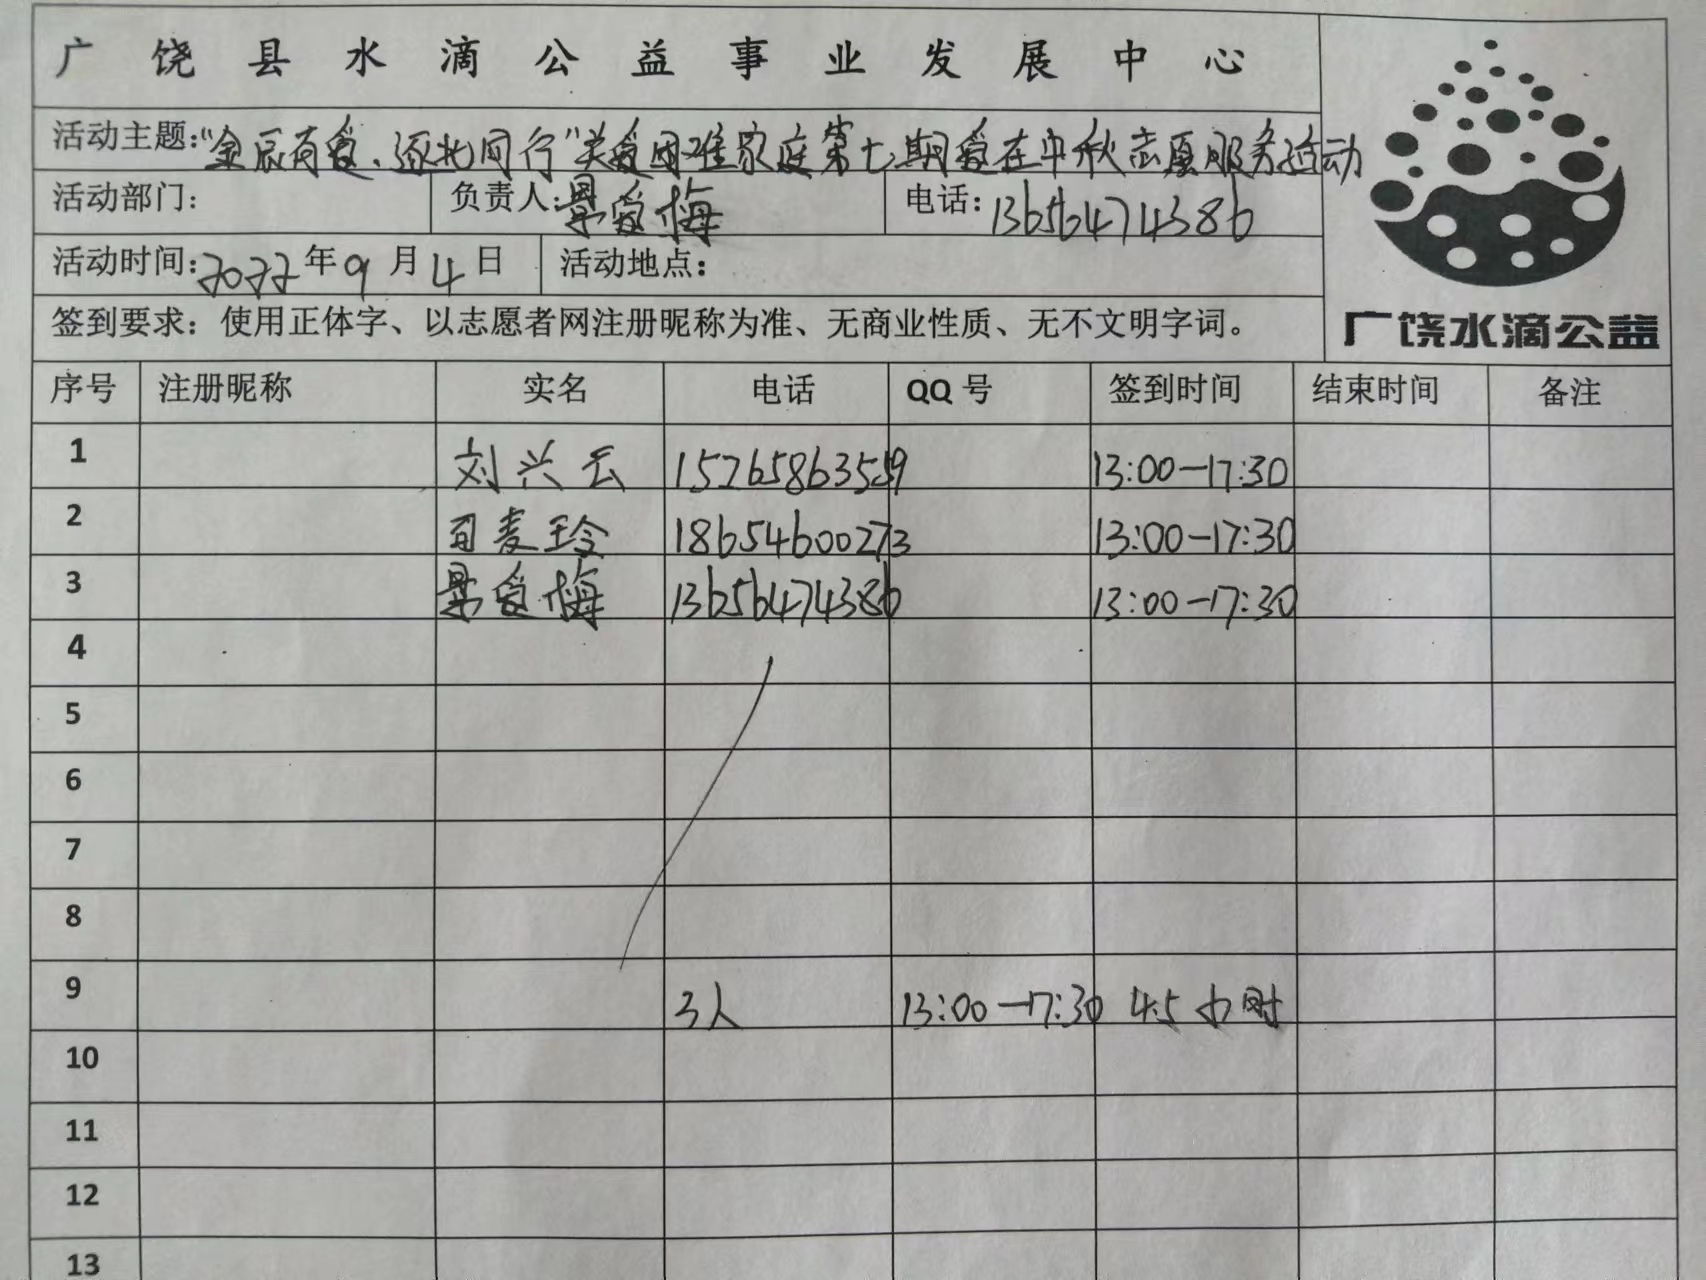 广饶县水滴公益事业发展中心
活动主题:"金辰有爱、逐北同行"关爱困难家庭第七期爱在中秋志愿服务活动
活动部门: 负责人:景爱梅 电话:13656474386
活动时间:2022年9月4日 活动地点:
签到要求：使用正体字、以志愿者网注册昵称为准、无商业性质、无不文明字词。
广饶水滴公益
序号 注册昵称 实名 电话 QQ号 签到时间 结束时间 备注
1 刘兴云 15265863559 13:00-17:30
2 司麦玲 18654600273 13:00-17:30
3 景爱梅 13656474386 13:00-17:30
4
5
6
7
8
9 3人 13:00-17:30 4.5小时
10
11
12
13